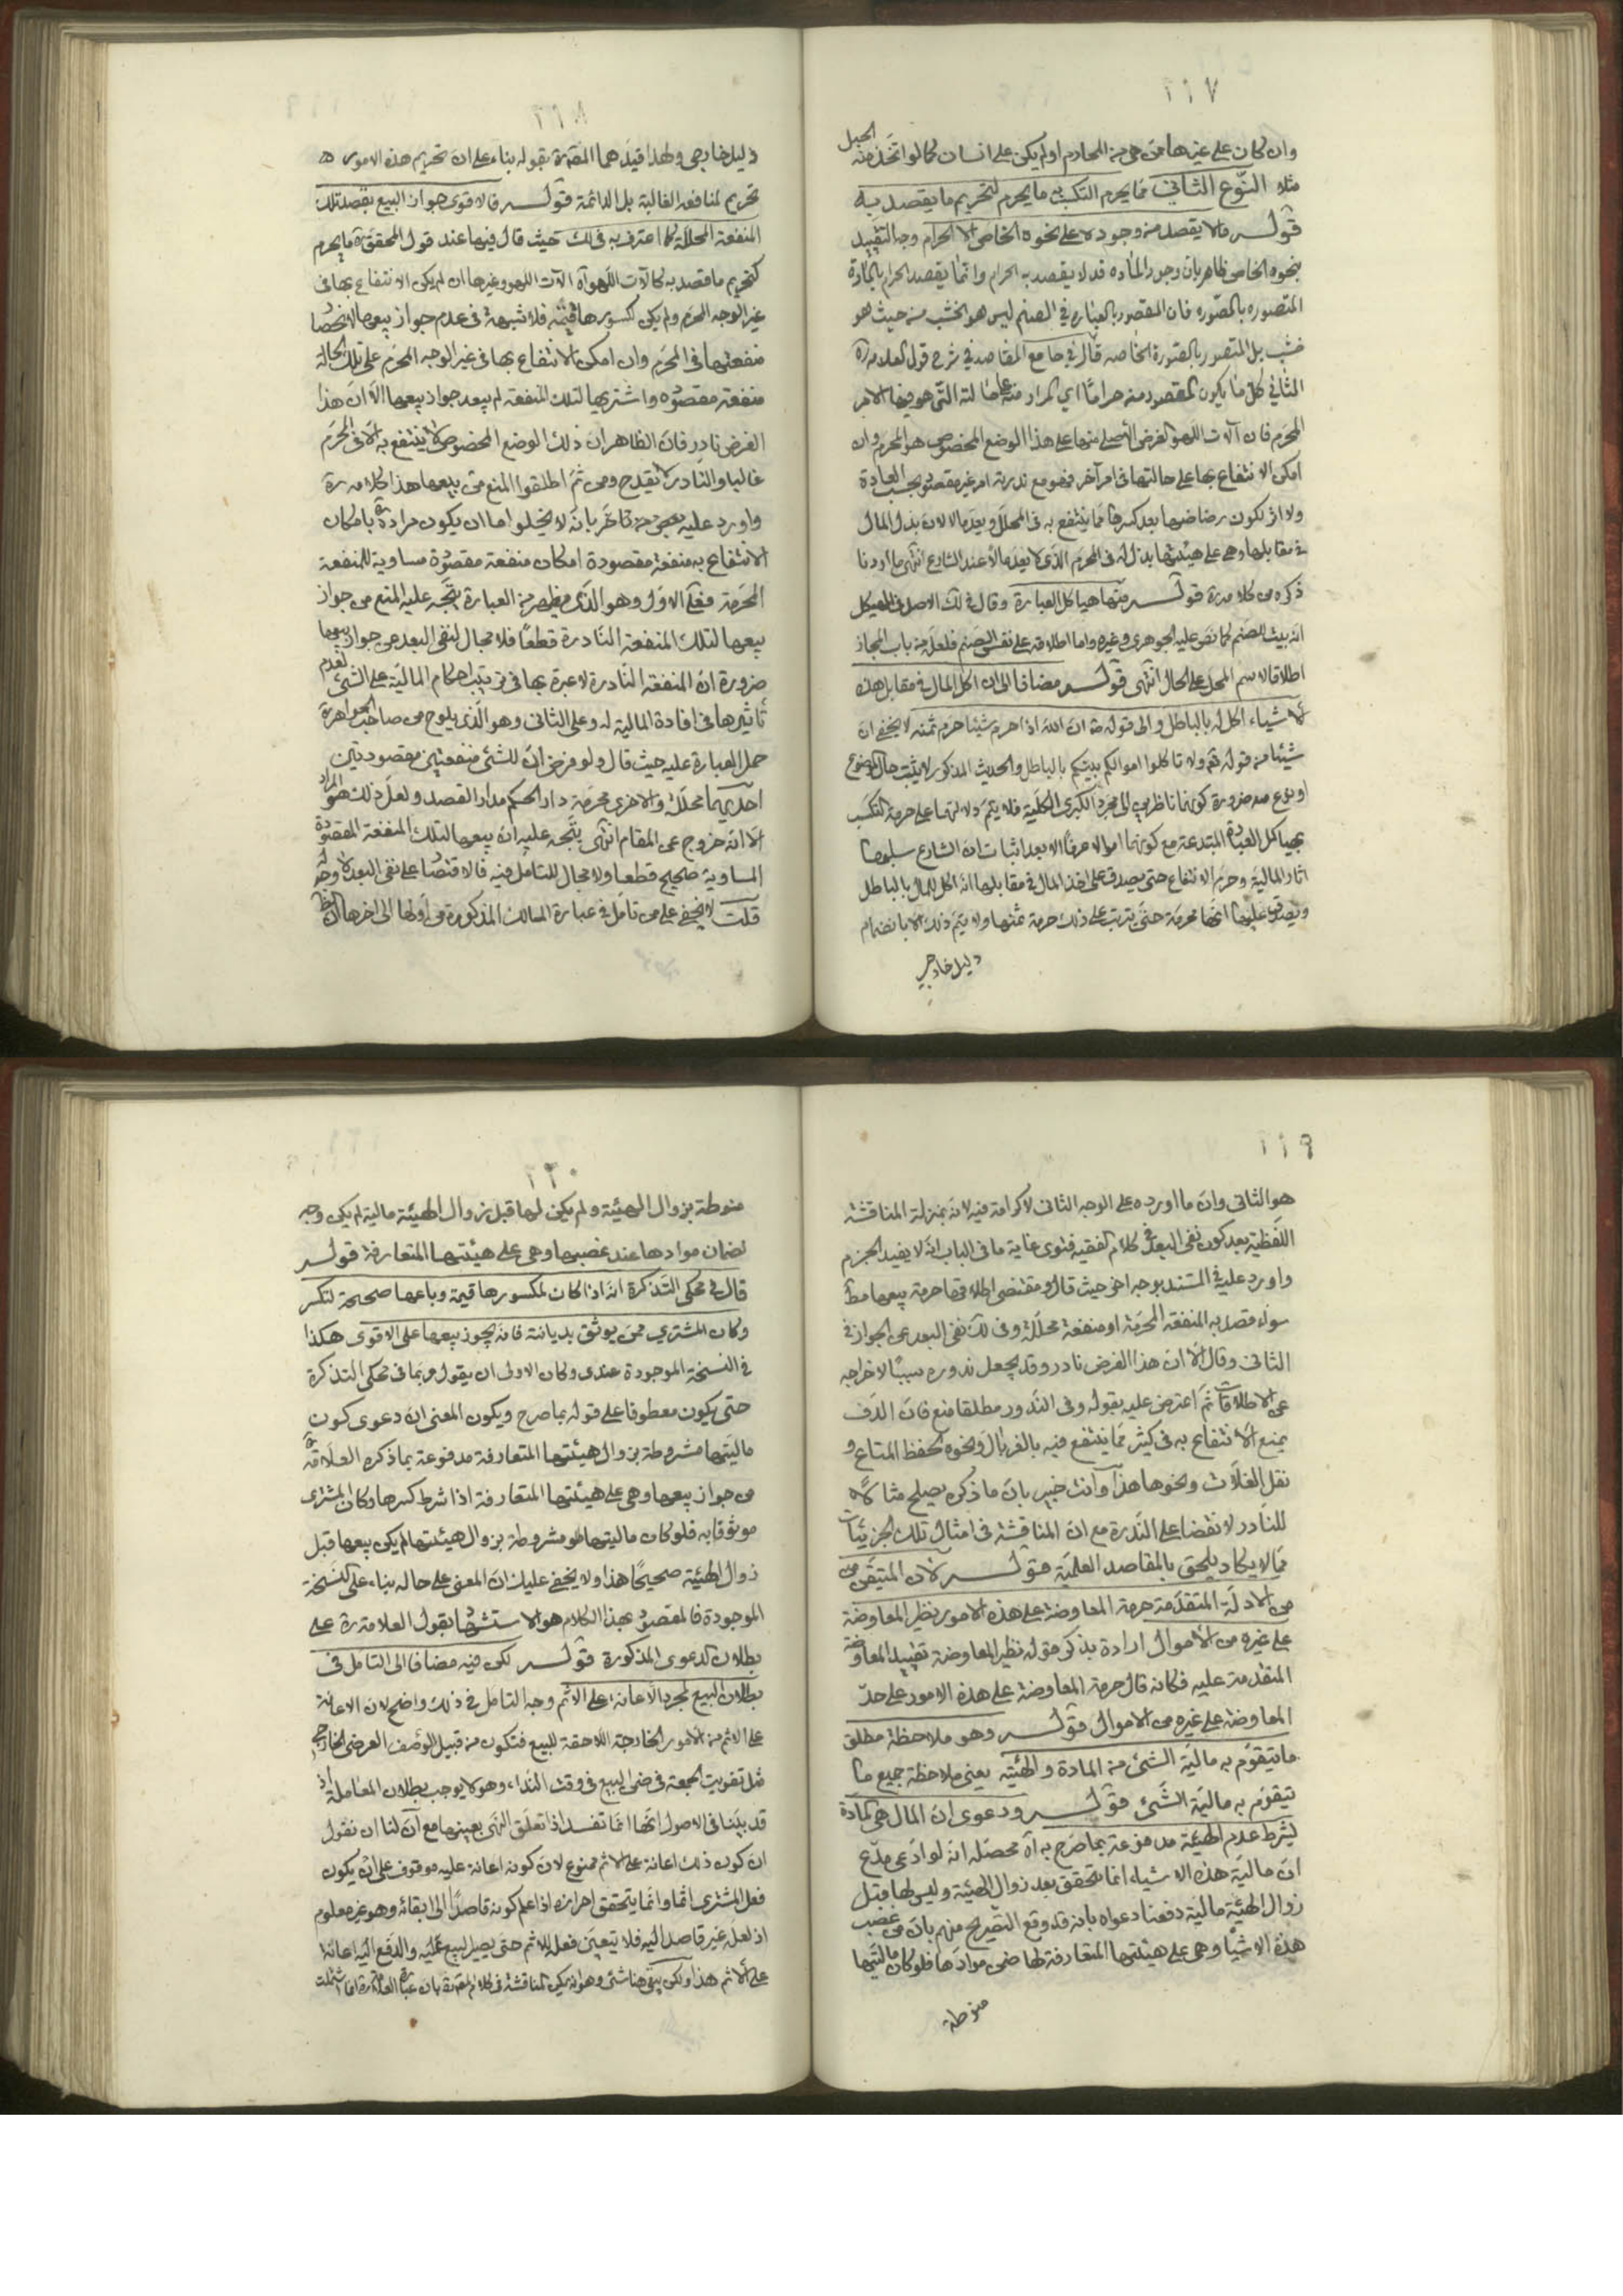 ١١٧
وان كان على غيرها من هى من المحارم او لم يكن على انسان كما لو اتخذ منه الحبل
مثلا النّوع الثانى مما يحرم التكسب به ما يحرم لتحريم ما يقصد به
قولـــه ما لا يقصد من وجوده على نحوه الخاص الا الحرام وجه التقييد
بنحوه الخاص ظاهر بان وجود المادة قد لا يقصد به الحرام وانما يقصد الحرام بالمادة
المتصوره بالصّوره فان المقصود بالعبارة فى الصنم ليس هو الخشب من حيث هو
خشب بل المتصور بالصّورة الخاصه قال فى جامع المقاصد فى شرح قول العلامة ره
الثانى كل ما يكون المقصود منه حراما اى المراد منه على حالته التى هو فيها الامر
المحرم فان آلات اللهو الغرض الأصلى منها على هذا الوضع المخصوص هو المحرم وان
امكن الانتفاع بها على حالتها فى امر آخر فهو مع ندرته امر غير مقصود بحسب العادة
ولا اثر لكون رضاضها بعد كسرها مما ينتفع به فى المحلل ويعد مالا لان بذل المال
فى مقابلها وهى على هيئتها بذل له فى المحرم الذى لا يعد مالا عند الشارع انتهى ما اردنا
ذكره من كلامه ره قولـــه منها هياكل العبارة وقال فى لك الاصل فى الهيكل
انه بيت الصنم كما نص عليه الجوهرى وغيره واما اطلاقه على نفس الصنم فلعله من باب المجاز
اطلاقا لاسم المحل على الحال انتهى قولـــه مضافا الى ان اكل المال فى مقابل هذه
الاشياء اكل له بالباطل والى قوله ص ان الله اذا حرم شيئا حرم ثمنه لا يخفى ان
شيئا من قوله تعالى ولا تاكلوا اموالكم بينكم بالباطل والحديث المذكور لا يثبت حال الموضوع
او نوع منه ضرورة كونهما ناظرين الى مجرد الكبرى الكلية فلا يتم دلالتهما على حرمة التكسب
بهياكل العبادة المبتدعة مع كونها اموالا عرفا الا بعد اثبات ان الشارع سلبها
اثار المالية وحرم الانتفاع حتى يصدق على اخذ المال فى مقابلها انه اكل للمال بالباطل
ويصدق عليها انها محرمة حتى يترتب على ذلك حرمة ثمنها ولا يتم ذلك الا بانضمام
دليل خارجى
١١٨
دليل خارجى ولهذا قيد هما المصّ ره بقوله بناء على ان تحريم هذه الامور
تحريم لمنافعه الغالبة بل الدائمة قولـــه فالاقوى جواز البيع بقصد تلك
المنفعة المحللة كما اعترف به فى لك حيث قال فيها عند قول المحقق ره ما يحرم
لتحريم ما قصد به كالآت اللهو آه الآت اللهو وغيرها ان لم يكن الانتفاع بها فى
غير الوجه المحرم ولم يكن لمكسورها قيمة فلا شبهة فى عدم جواز بيعها لانحصار
منفعتها فى المحرم وان امكن الانتفاع بها فى غير الوجه المحرم على تلك الحالة
منفعة مقصوده واشتريها لتلك المنفعة لم يبعد جواز بيعها الا ان هذا
الفرض نادر فان الظاهر ان ذلك الوضع المخصوص لا ينتفع به الا فى المحرم
غالبا والنادر لا يقدح ومن ثم اطلقوا المنع من بيعها هذا كلامه ره
واورد عليه بعض من تاخر بانه لا يخلوا اما ان يكون مراده ره بامكان
الانتفاع به منفعة مقصودة امكان منفعة مقصودة مساوية للمنفعة
المحرمة فعلى الاول وهو الذى يظهر من العبارة يتجه عليه المنع من جواز
بيعها لتلك المنفعة النادرة قطعا فلا مجال لنفى البعد عن جواز بيعها
ضرورة ان المنفعة النادرة لا عبرة بها فى ترتيب احكام المالية على الشئ لعدم
تأثيرها فى افادة المالية له وعلى الثانى وهو الذى يلوح من صاحب الجواهر ره
حمل العبارة عليه حيث قال ولو فرض ان للشئ منفعتين مقصودتين
احديهما محللة والاخرى محرمة دار الحكم مدار القصد ولعل ذلك هو المراد
الا انه خروج عن المقام انتهى يتجه عليه ان بيعها لتلك المنفعة المقصودة
المساوية صحيح قطعا ولا مجال للتامل فيه فالاقتصار على نفى البعد لا وجه له
قلت لا يخفى على من تامل فى عبارة المسالك المذكورة من اولها الى اخرها ان الظ
١١٩
هو الثانى وان ما اورده على الوجه الثانى لا كرامة فيه لانه بمنزلة المناقشة
اللفظية بعد كون نفى البعد فى كلام الفقيه فتوى غاية ما فى الباب انه لا يفيد الجزم
واورد عليه فى المستند بوجه اخر حيث قال ومقتضى اطلاقها حرمة بيعها مط
سواء قصد به المنفعة المحرمة او منفعة محللة وفى لك نفى البعد عن الجواز فى
الثانى وقال الا ان هذا الفرض نادر وقد يجعل ندوره سببا لاخراجه
عن الاطلاقات ثم اعترض عليه بقوله وفى الندور مطلقا منع فان الدف
يمنع الانتفاع به فى كثير مما ينتفع فيه بالغربال ونحوه كحفظ المتاع و
نقل الغلات ونحوها هذا وانت خبير بان ما ذكره يصلح مثالا
للنادر لانقضاء على الندرة مع ان المناقشة فى امثال تلك الجزئيات
مما لا يكاد يلحق بالمقاصد العلمية قولـــه لان المتيقن
من الادلة المتقدمة حرمة المعاوضة على هذه الامور نظير المعاوضة
على غيره من الأموال ارادة بذكر قوله نظير المعاوضة تقييد المعاوضة
المتقدمة عليه فكانه قال حرمة المعاوضة على هذه الامور على حدّ
المعاوضة على غيره من الاموال قولـــه وهو ملاحظة مطلق
ما يتقوم به مالية الشئ من المادة والهيئة يعنى ملاحظة جميع ما
تيقوم به مالية الشئ قولـــه ودعوى ان المال هى المادة
بشرط عدم الهيئة مدفوعة بما صرح به آه محصّله انه لو ادعى مدّع
ان مالية هذه الاشياء انما تتحقق بعد زوال الهيئة وليس لها قبل
زوال الهيئة مالية دفعنا دعواه بانه قد وقع التصريح منهم بان من غصب
هذه الاشياء وهى على هيئتها المتعارفة لها ضمن موادها فلو كان ماليتها
منوطة
١٢٠
منوطة بزوال الهيئة ولم يكن لها قبل زوال الهيئة مالية لم يكن وجه
لضمان موادها عند غصبها وهى على هيئتها المتعارفة قولـــه
قال فى محكى التذكرة انه اذا كان لمكسورها قيمة وباعها صحيحة لتكسر
وكان المشترى ممن يوثق بديانته فانه يجوز بيعها على الاقوى هكذا
فى النسخة الموجودة عندى وكان الاولى ان يقول وبما فى محكى التذكرة
حتى يكون معطوفا على قوله بما صرح ويكون المعنى ان دعوى كون
ماليتها مشروطة بزوال هيئتها المتعارفة مدفوعة بما ذكره العلامة ره
من جواز بيعها وهى على هيئتها المتعارفة اذا شرط كسرها وكان المشترى
موثوقا به فلو كان ماليتها مشروطة بزوال هيئتها لم يكن بيعها قبل
زوال الهيئة صحيحا هذا ولا يخفى عليك ان المعنى على حاله بناء على النسخة
الموجودة فالمقصود بهذا الكلام هو الاستشهاد بقول العلامة ره على
بطلان الدعوى المذكورة قولـــه لكن فيه مضافا الى التامل فى
بطلان البيع لمجرد الاعانة على الاثم وجه التامل فى ذلك واضح لان الاعانة
على الاثم من الأمور الخارجة اللاحقة للبيع فتكون من قبيل الوصف العرضى الخارجى
مثل تفويت الجمعة فى ضمن البيع فى وقت النداء وهو لا يوجب بطلان المعاملة اذ
قد بيّنا فى الاصول انها انما تفسد اذا تعلق النهى بعينها مع ان لنا ان نقول
ان كون ذلك اعانة على الاثم ممنوع لان كونه اعانة عليه موقوف على ان يكون
فعل المشترى اثما وانما يتحقق احرازه اذا علم كونه قاصدا الى ابقائه وهو غير معلوم
اذ لعله غير قاصد اليه فلا يتعين فعله للاثم حتى يصير البيع عليه والدفع اليه اعانة
على الاثم هذا ولكن بقى هنا شئ وهو انه يمكن المناقشة فى كلام المصّ ره بان عبارة العلامة ره انما اشتملت